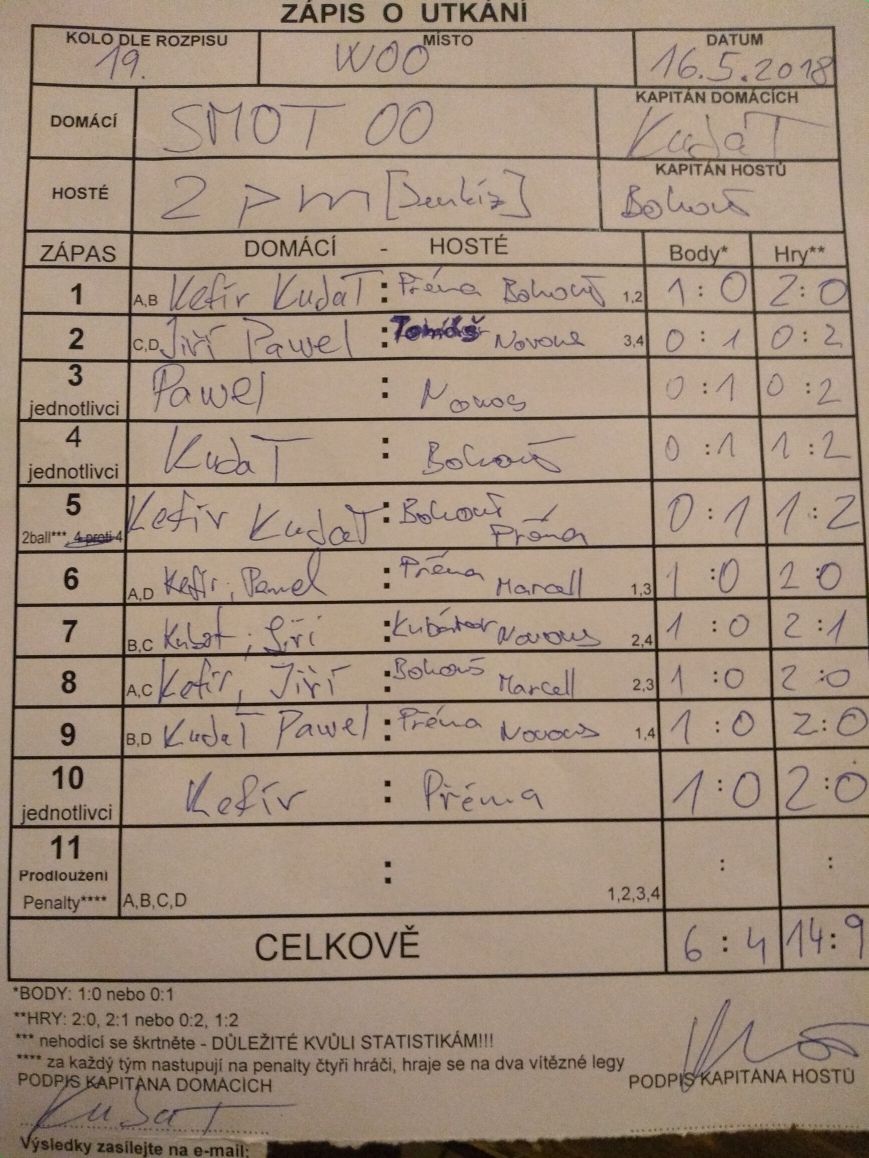 ZÁPIS O UTKÁNÍ
KOLO DLE ROZPISU MÍSTO DATUM
19. WOO 16.5.2018
DOMÁCÍ SMOT OO KAPITÁN DOMÁCÍCH KudaT
HOSTÉ 2 pm KAPITÁN HOSTŮ Bohouš
ZÁPAS DOMÁCÍ - HOSTÉ Body* Hry**
1 A,B Kefír KudaT : Přéma Bohouš 1,2 1:0 2:0
2 C,D Jiří Pawel : Tomáš 3,4 0:1 0:2
3 jednotlivci Pawel : 0:1 0:2
4 jednotlivci KudaT : Bohouš 0:1 1:2
5 2ball*** 4 proti 4 Kefír KudaT : Bohouš Přéma 0:1 1:2
6 A,D Kefír, Pawel : Přéma Marcell 1,3 1:0 2:0
7 B,C ; Jiří : Novous 2,4 1:0 2:1
8 A,C Kefír, Jiří : Bohouš Marcell 2,3 1:0 2:0
9 B,D KudaT Pawel : Přéma Novous 1,4 1:0 2:0
10 jednotlivci Kefír : Přéma 1:0 2:0
11 Prodloužení Penalty**** A,B,C,D : 1,2,3,4 : :
CELKOVĚ 6:4 14:9
*BODY: 1:0 nebo 0:1
**HRY: 2:0, 2:1 nebo 0:2, 1:2
*** nehodící se škrtněte - DŮLEŽITÉ KVŮLI STATISTIKÁM!!!
**** za každý tým nastupují na penalty čtyři hráči, hraje se na dva vítězné legy
PODPIS KAPITÁNA DOMÁCÍCH PODPIS KAPITÁNA HOSTŮ
KudaT
Výsledky zasílejte na e-mail: